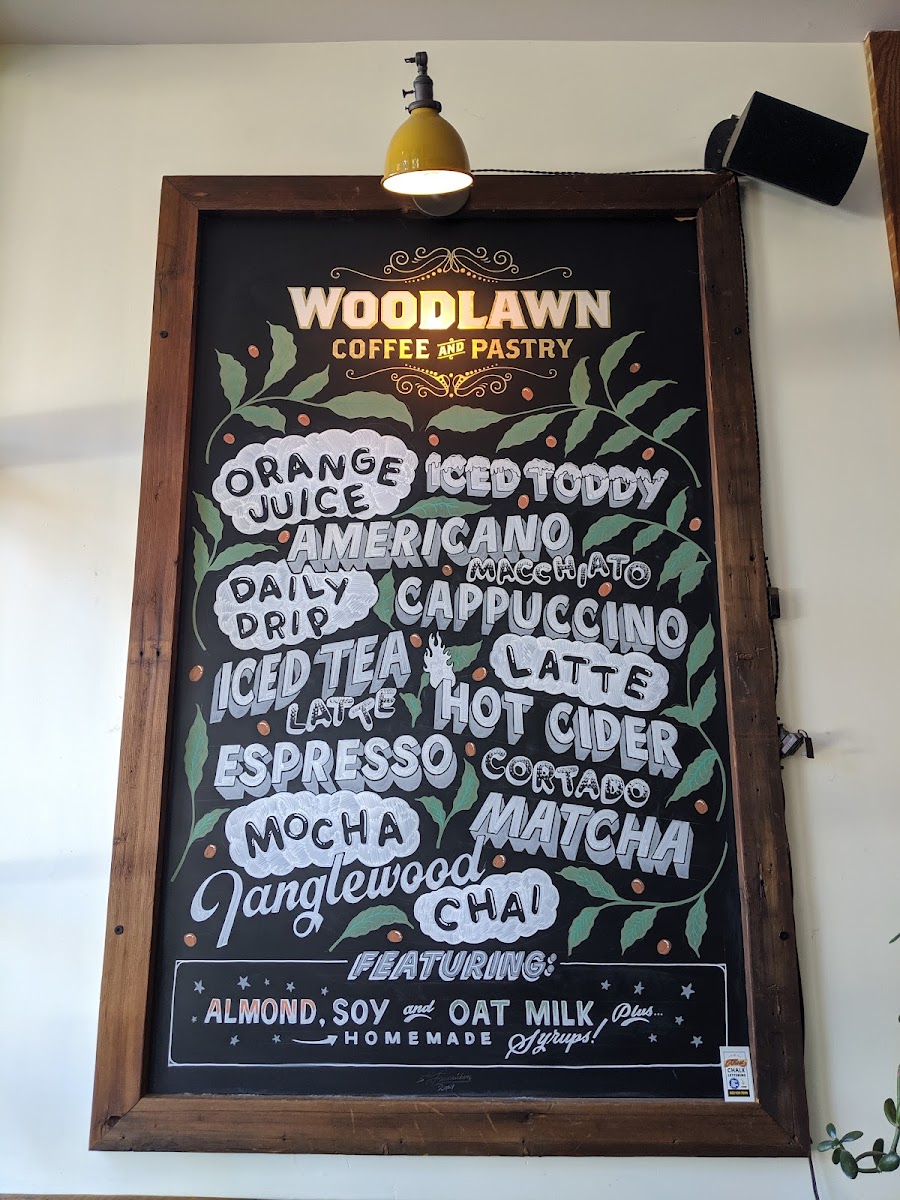 WOODLAWN
COFFEE AND PASTRY
ORANGE
JUICE
ICED TODDY
AMERICANO
MACCHIATO
DAILY
DRIP
CAPPUCCINO
ICED TEA
LATTE
LATTE
HOT CIDER
ESPRESSO
CORTADO
MOCHA
MATCHA
Tanglewood
CHAI
FEATURING:
ALMOND, SOY and OAT MILK Plus...
HOMEMADE Syrups!
CHALK
LETTERING